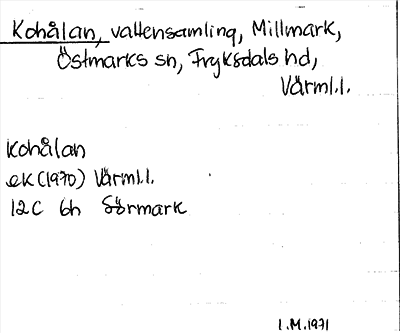 Kohålan, vattensamling, Millmark,
Östmarks sn, Fryksdals hd,
Värml.l.
Kohålan
ek (1970) Värml.l.
12C 6h Sörmark
I.M. 1971